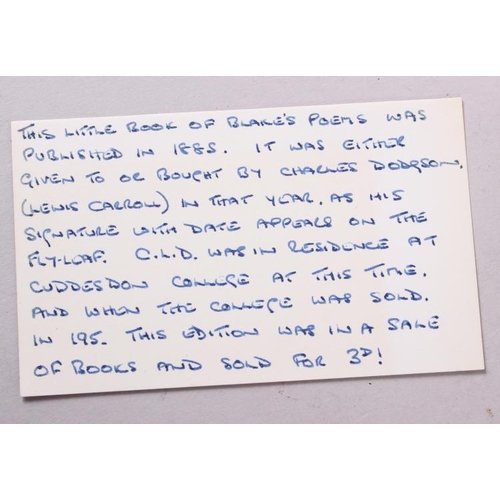 THIS LITTLE BOOK OF BLAKE'S POEMS WAS
PUBLISHED IN 1885. IT WAS EITHER
GIVEN TO OR BOUGHT BY CHARLES DODGSON.
(LEWIS CARROLL) IN THAT YEAR, AS HIS
SIGNATURE WITH DATE APPEARS ON THE
FLY-LEAF. C.L.D. WAS IN RESIDENCE AT
CUDDESDON COLLEGE AT THIS TIME.
AND WHEN THE COLLEGE WAS SOLD.
IN 195. THIS EDITION WAS IN A SALE
OF BOOKS AND SOLD FOR 3D!